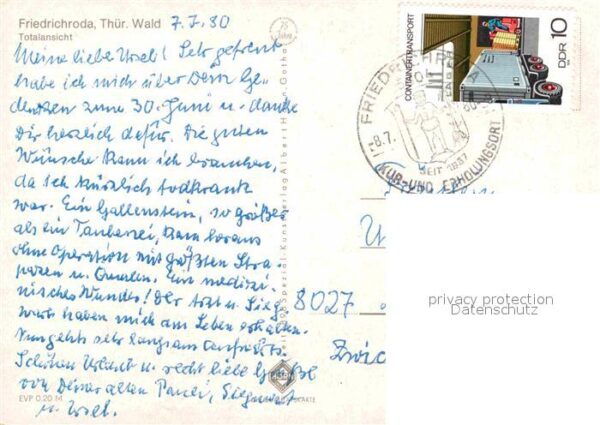 Friedrichroda, Thür. Wald 7.7.80
Totalansicht
Meine liebe Ursel! Sehr gefreut
habe ich mich über Dein Ge-
denken zum 30. Juni u. danke
Dir herzlich dafür. Die guten
Wünsche kann ich brauchen,
da ich kürzlich todkrank
war. Ein Gallenstein, so größer
als ein Taubenei, kam heraus
ohne Operation mit größten Stra-
pazen u. Qualen. Ein medizi-
nisches Wunder! Der Arzt u. Sieg-
haben mich am Leben erhalten.
Nun gehts sehr langsam aufwärts.
Schönen Urlaub u. recht liebe Grüße
von Deiner alten
u. Ursel.
EVP 0,20 M
Spezial-Kunstverlag Albert Gotha
CONTAINERTRANSPORT
DDR 10
FRIEDRICHRODA
-8.7.
80
SEIT 1837
KUR- UND ERHOLUNGSORT
8027
privacy protection
Datenschutz